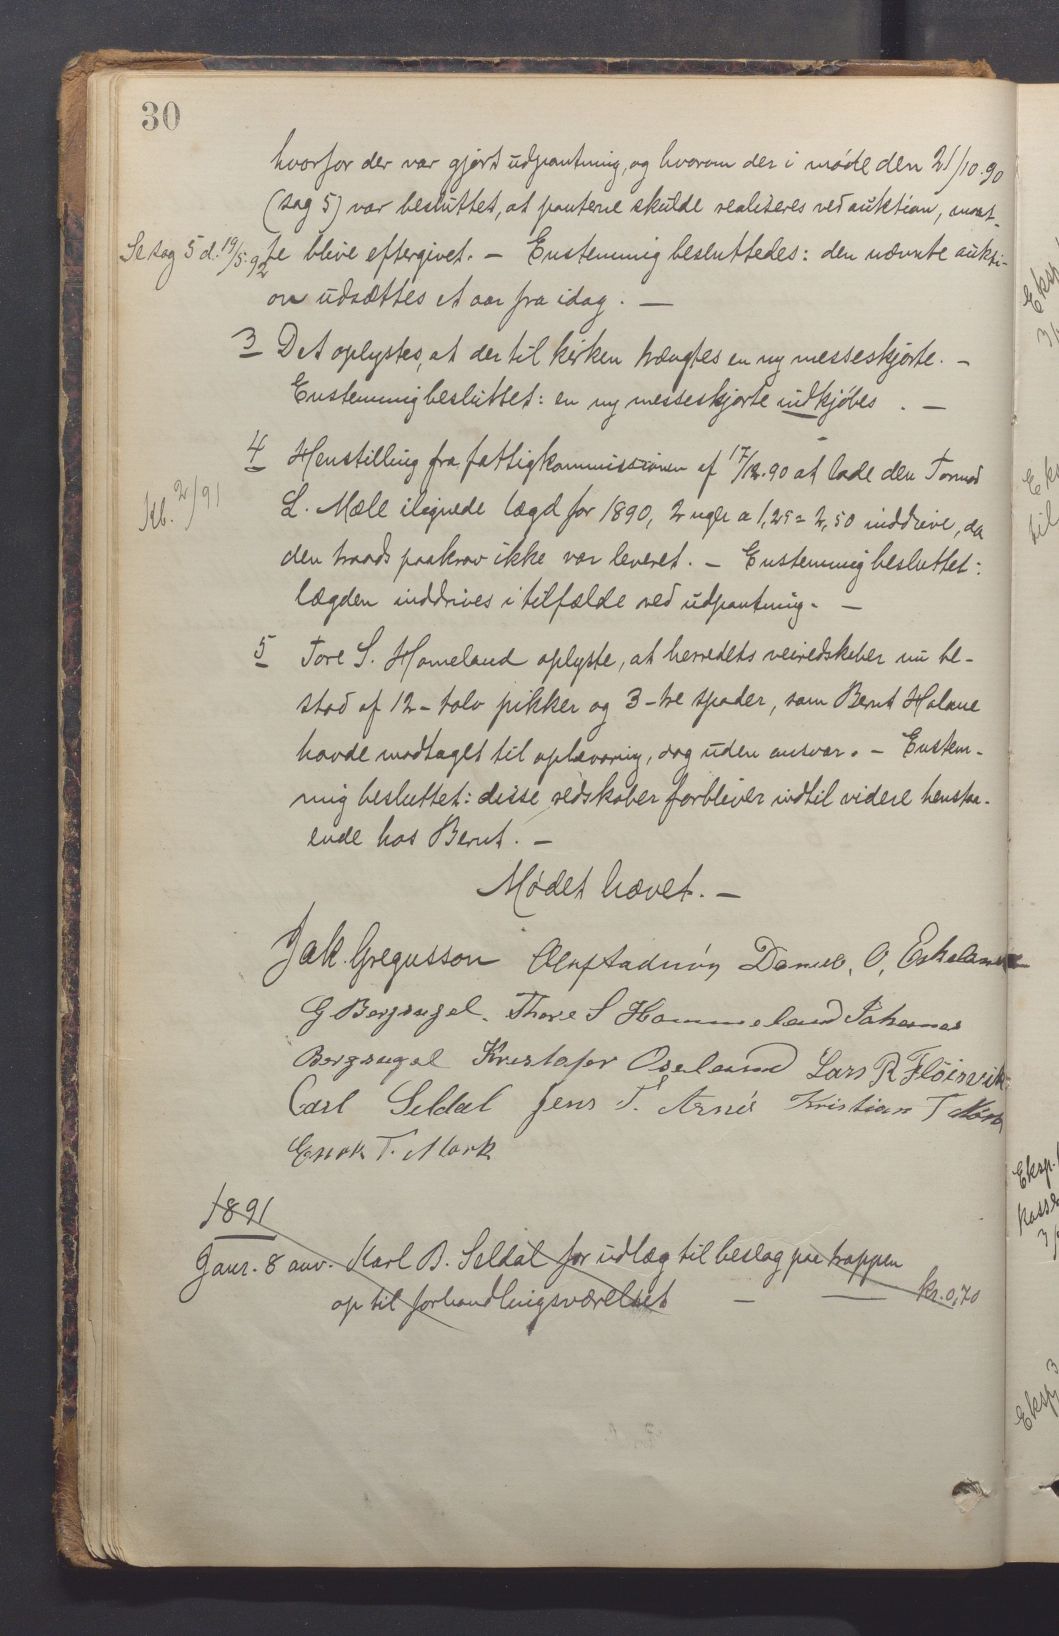 30
hvorfor der var gjort udpantning, og hvorom der i møde den 21/10.90
(sag 5) var besluttet, at panterne skulde realiseres ved auktion, maat-
Se sag 5 d. 19/5.92
te blive eftergivet. – Enstemmig besluttedes: den nævnte aukti-
on udsættes et aar fra idag. —
3 Det oplystes, at der til kirken trængtes en ny messeskjorte. –
Enstemmig besluttet: en ny messeskjorte indkjøbes. —
4 Henstilling fra fattigkommissionen af 17/12.90 at lade den Tormod
Kb. 2/91
L. Mæle ilignede lægd for 1890, 2 ugl a 1,25 = 2,50 inddrive, da
den traads paakrav ikke var leveret. – Enstemmig besluttet:
lægden inddrives i tilfælde ved udpantning. —
5 Tore S. Homeland oplyste, at herredets veiredskaber nu be-
stod af 12 – tolv pikker og 3 – tre spader, som Bernt Halane
havde modtaget til opbevaring, dog uden ansvar. – Enstem-
mig besluttet: disse redskaber forbliver indtil videre henstaa-
ende hos Bernt. –
Mødet hævet. –
Jak. Gregusson Daniel. O. Eskeland
G Bergsagel. Thore S Hommeland Johannes
Bergsagel Kristofer Oseland Lars R Fløisvik
Carl Seldal Jens T. S. Arnø Kristian T Mørk
Enok T. Mørk
1891
Janr. 8 anv. Karl B. Seldal for udlæg til beslag paa trappen
op til forhandlingsværelset – — kr. 0,70
Eksp.
Eksp.
kasse